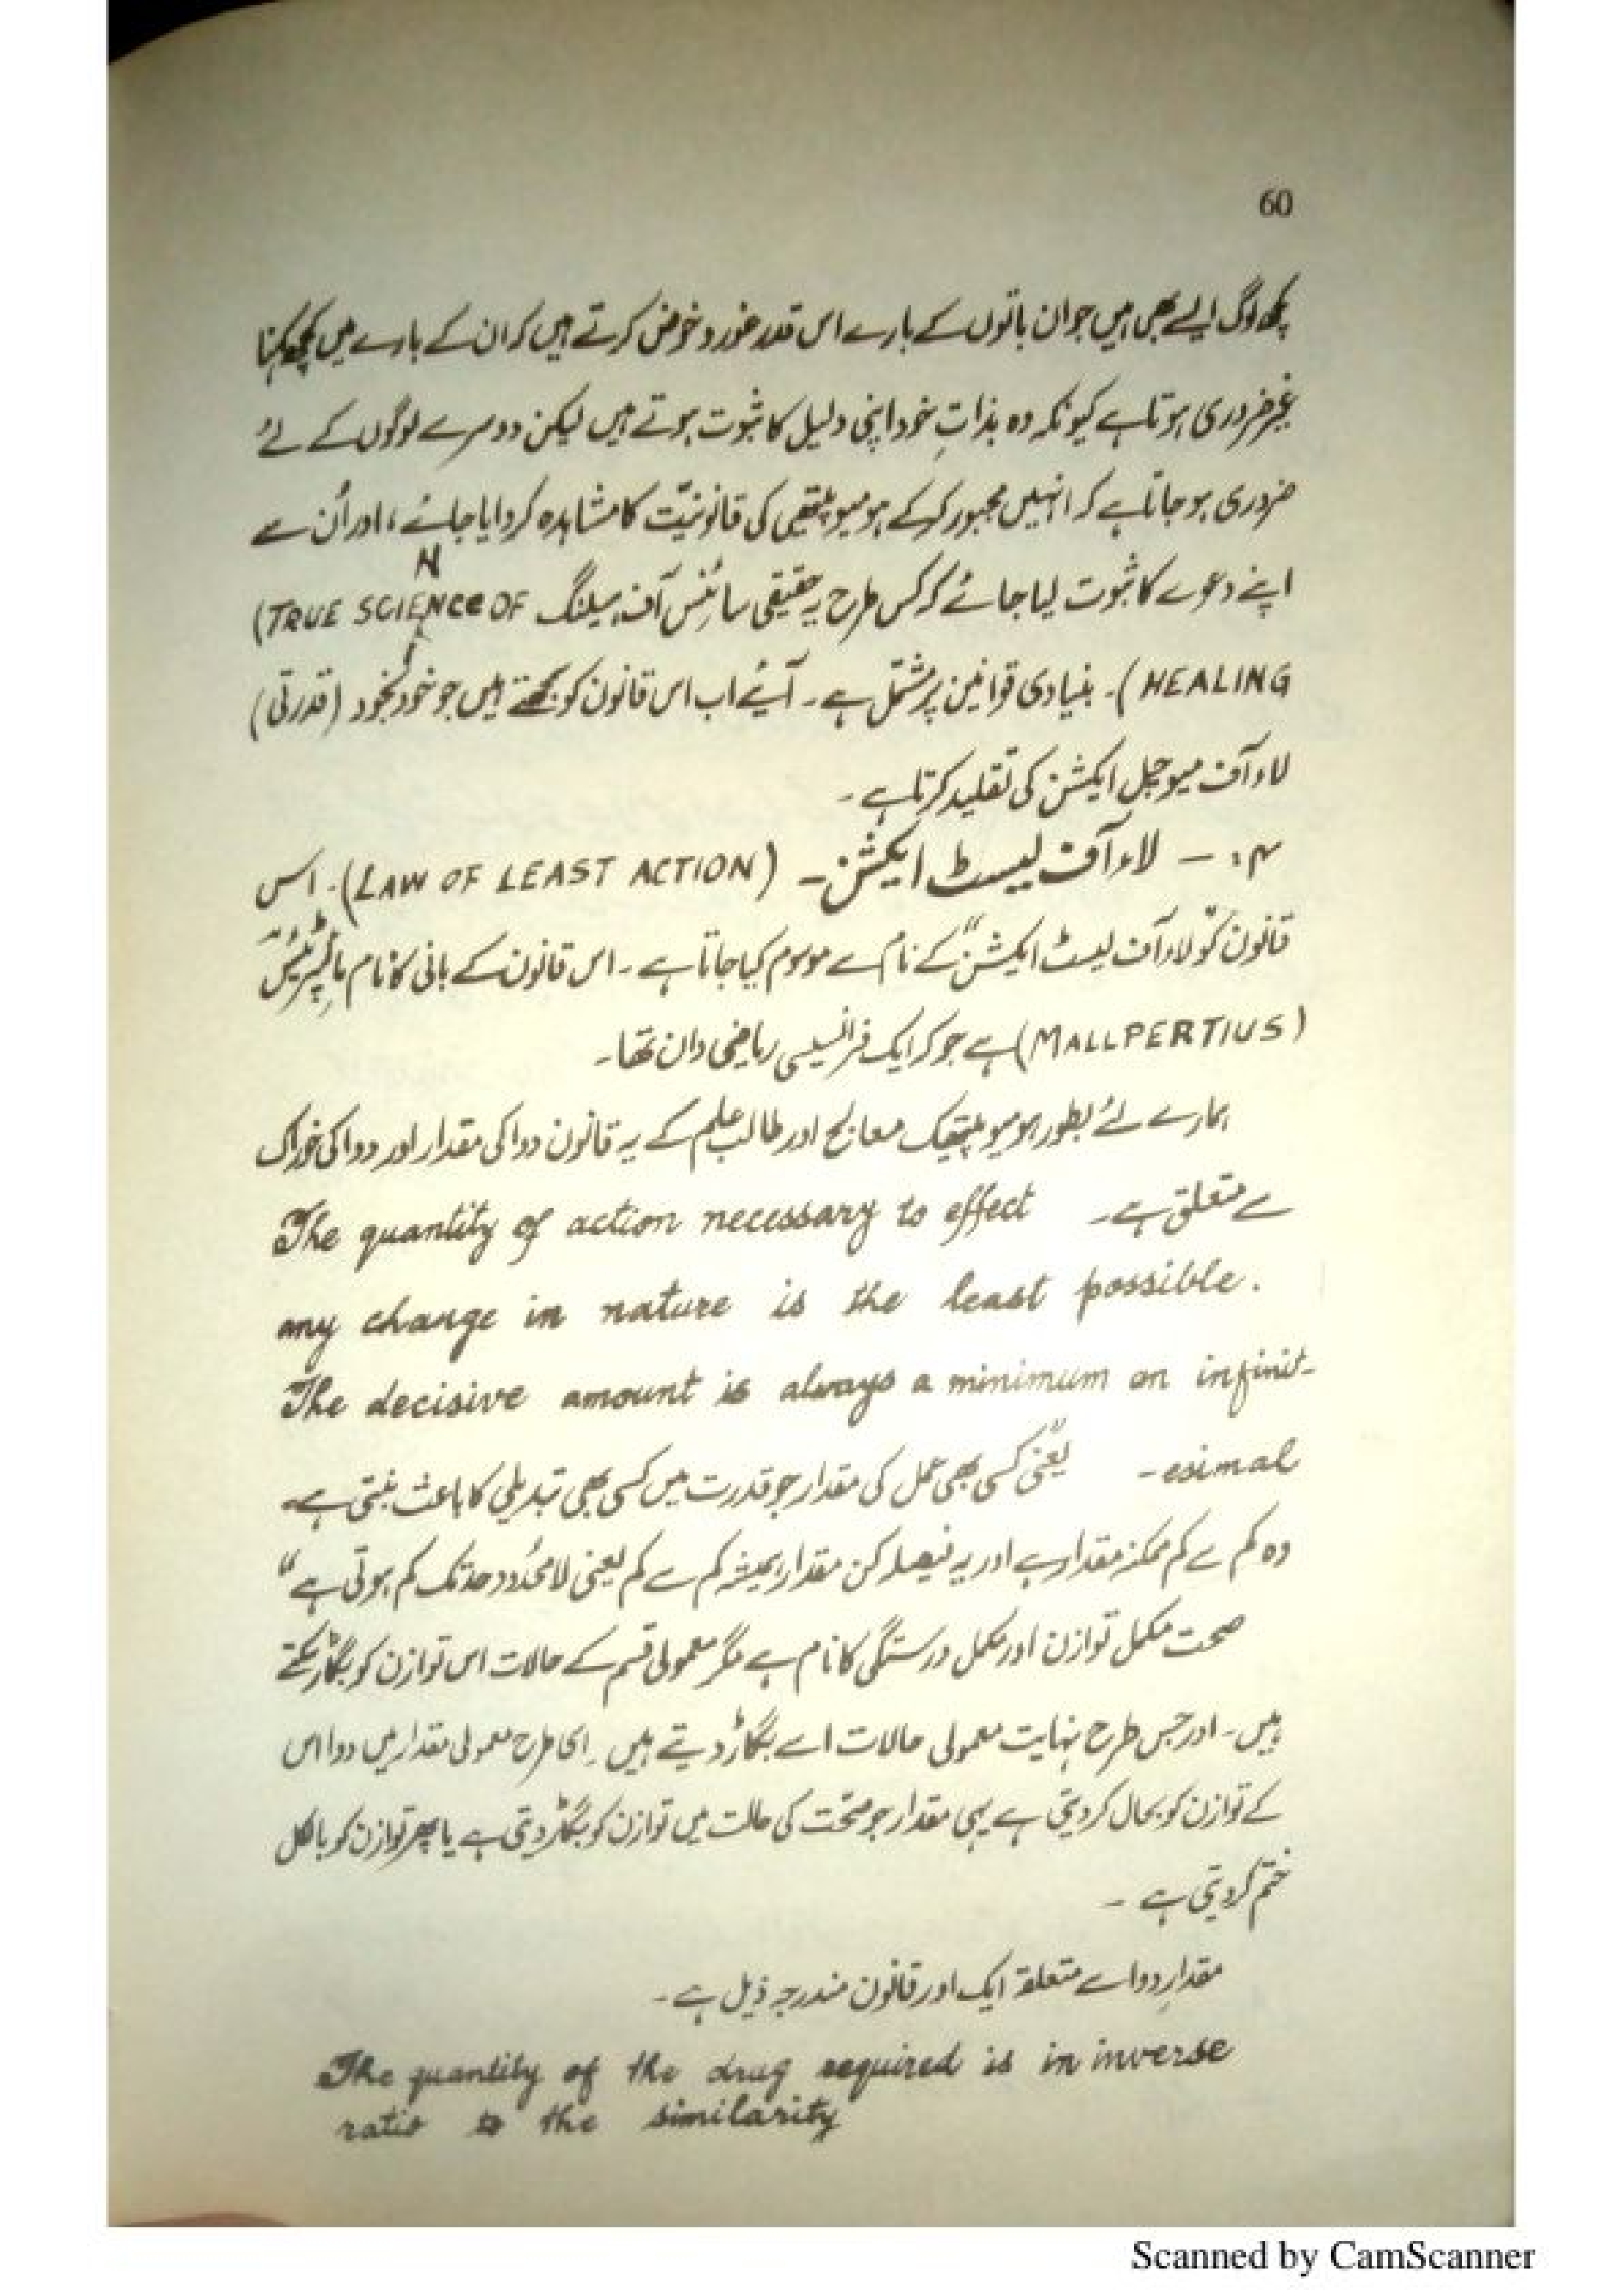 60
کچھ لوگ ایسے بھی ہیں جو ان باتوں کے بارے اس قدر غور و خوض کرتے ہیں کہ ان کے بارے میں کچھ کہنا
غیر ضروری ہوتا ہے کیونکہ وہ بذاتِ خود اپنی دلیل کا ثبوت ہوتے ہیں لیکن دوسرے لوگوں کے لئے
ضروری ہو جاتا ہے کہ انہیں مجبور کر کے ہومیوپیتھی کی قانونیّت کا مشاہدہ کروایا جائے، اور اُن سے
اپنے دعوے کا ثبوت لیا جائے کہ کس طرح یہ حقیقی سائنس آف ہیلنگ (TRUE SCIENce OF
HEALING)۔ بنیادی قوانین پر مشتمل ہے۔ آئیے اب اس قانون کو دیکھتے ہیں جو خود بخود (قدرتی)
لاء آف میوچل ایکشن کی تقلید کرتا ہے۔
۴:— لاء آف لیسٹ ایکشن۔ (LAW OF LEAST ACTION)۔ اس
قانون کو "لاء آف لیسٹ ایکشن" کے نام سے موسوم کیا جاتا ہے۔ اس قانون کے بانی کا نام
(MALLPERTIUS) ہے جو کہ ایک فرانسیسی ریاضی دان تھا۔
ہمارے لئے بطور ہومیوپیتھک معالج اور طالب علم کے یہ قانون دوا کی مقدار اور دوا کی خوراک
سے متعلق ہے۔ The quantity of action necessary to effect
any change in nature is the least possible.
The decisive amount is always a minimum an infinit-
-esimal یعنی "کسی بھی عمل کی مقدار جو قدرت میں کسی بھی تبدیلی کا باعث بنتی ہے۔
وہ کم سے کم ممکنہ مقدار ہے اور یہ فیصلہ کن مقدار ہمیشہ کم سے کم یعنی لامحدود حد تک کم ہوتی ہے"
صحت مکمل توازن اور مکمل درستگی کا نام ہے مگر معمولی قسم کے حالات اس توازن کو بگاڑ سکتے
ہیں۔ اور جس طرح نہایت معمولی حالات اسے بگاڑ دیتے ہیں۔ اسی طرح معمولی مقدار میں دوا اس
کے توازن کو بحال کر دیتی ہے یہی مقدار جو صحّت کی حالت میں توازن کو بگاڑ دیتی ہے یا پھر توازن کو بالکل
ختم کر دیتی ہے۔
مقدارِ دوا سے متعلقہ ایک اور قانون مندرجہ ذیل ہے۔
The quantity of the drug required is in inverse
ratio to the similarity
Scanned by CamScanner